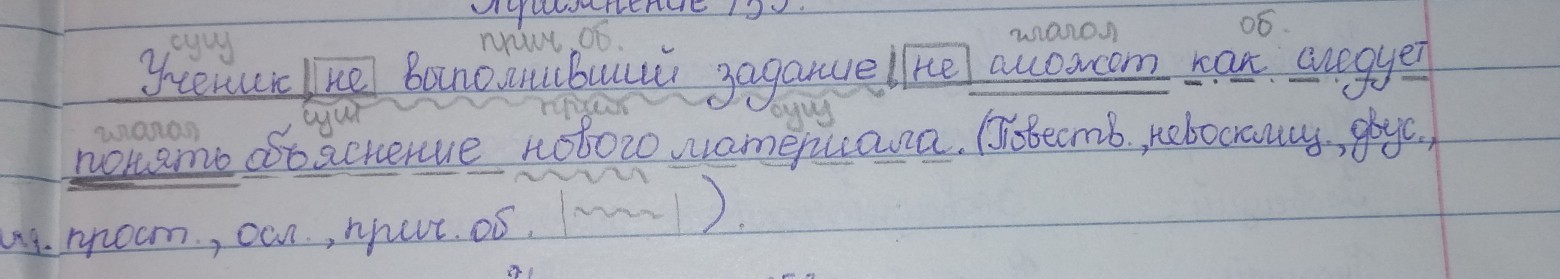 Упражнение 153.
сущ прич. об. глагол об.
Ученик не выполнивший задание не сможет как следует
глагол сущ прил сущ
понять объяснение нового материала. (Повеств., невосклиц., двус.,
прост., осл., прич. об. |~~~|).